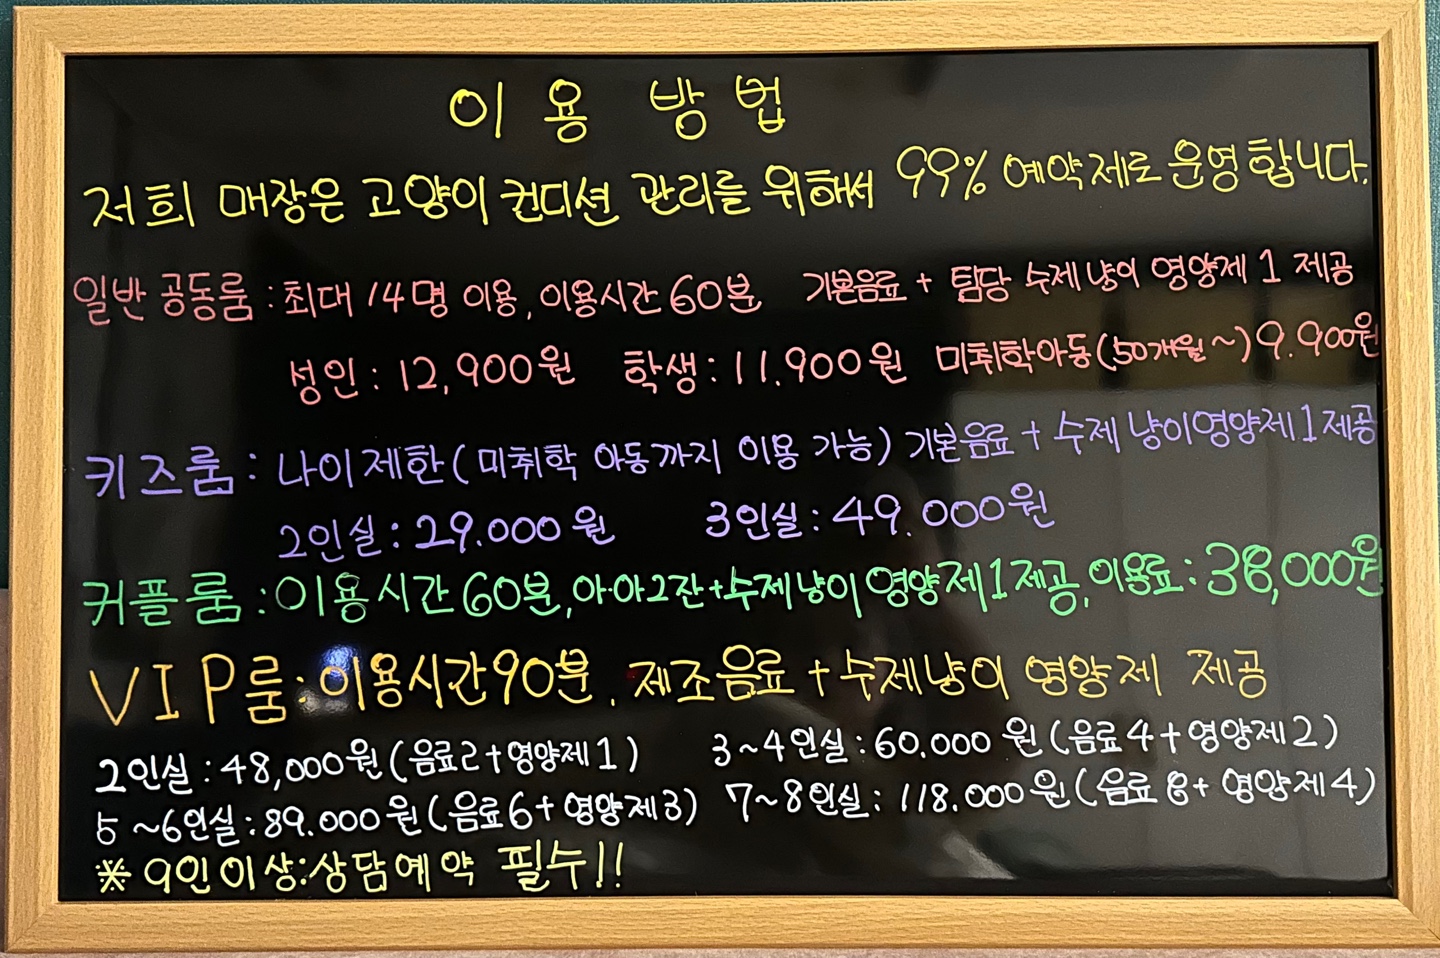 이용 방법
저희 매장은 고양이 컨디션 관리를 위해서 99% 예약제로 운영합니다.
일반 공동룸 : 최대 14명 이용, 이용시간 60분 기본음료 + 팀당 수제 냥이 영양제 1 제공
성인 : 12,900원 학생 : 11.900원 미취학아동(50개월~) 9.900원
키즈룸 : 나이제한(미취학 아동까지 이용 가능) 기본음료 + 수제 냥이영양제 1 제공
2인실 : 29.000원 3인실 : 49.000원
커플룸 : 이용시간 60분, 아·아2잔+수제냥이 영양제1제공, 이용료 : 38,000원
VIP룸 : 이용시간 90분, 제조음료 + 수제냥이 영양제 제공
2인실 : 48,000원(음료2+영양제1) 3~4인실 : 60.000원(음료4+영양제2)
5~6인실 : 89.000원(음료6+영양제3) 7~8인실 : 118.000원(음료8+영양제4)
※ 9인이상:상담예약 필수!!